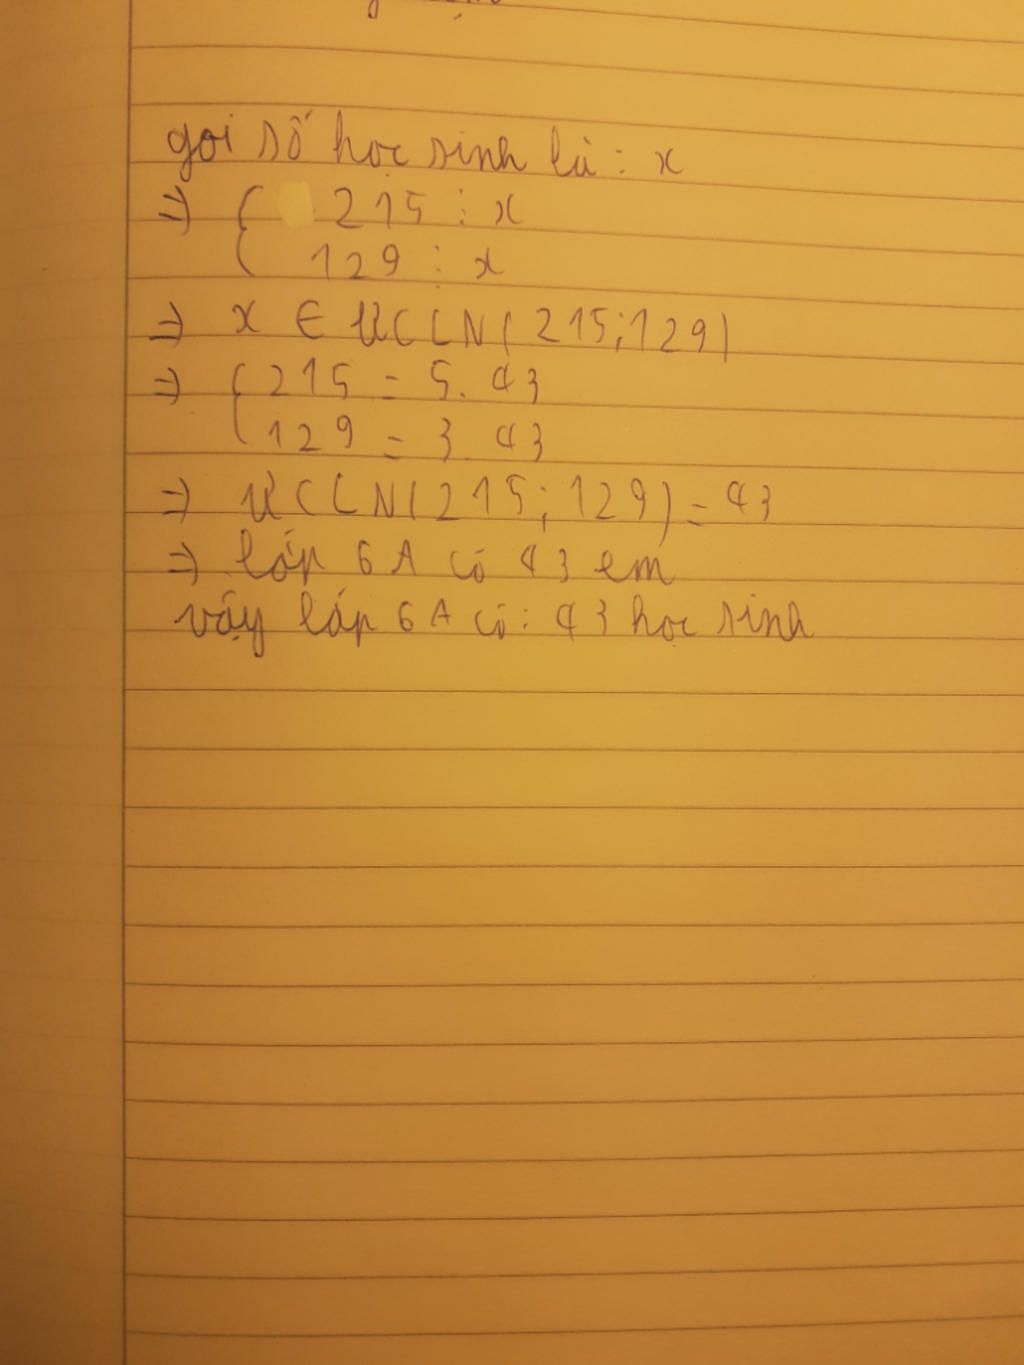 gọi số học sinh là : x
=> { 215 ⋮ x
129 ⋮ x
=> x ∈ ƯCLN( 215;129)
=> { 215 = 5. 43
129 = 3. 43
=> ƯCLN(215; 129) = 43
=> lớp 6A có 43 em
vậy lớp 6A có: 43 học sinh